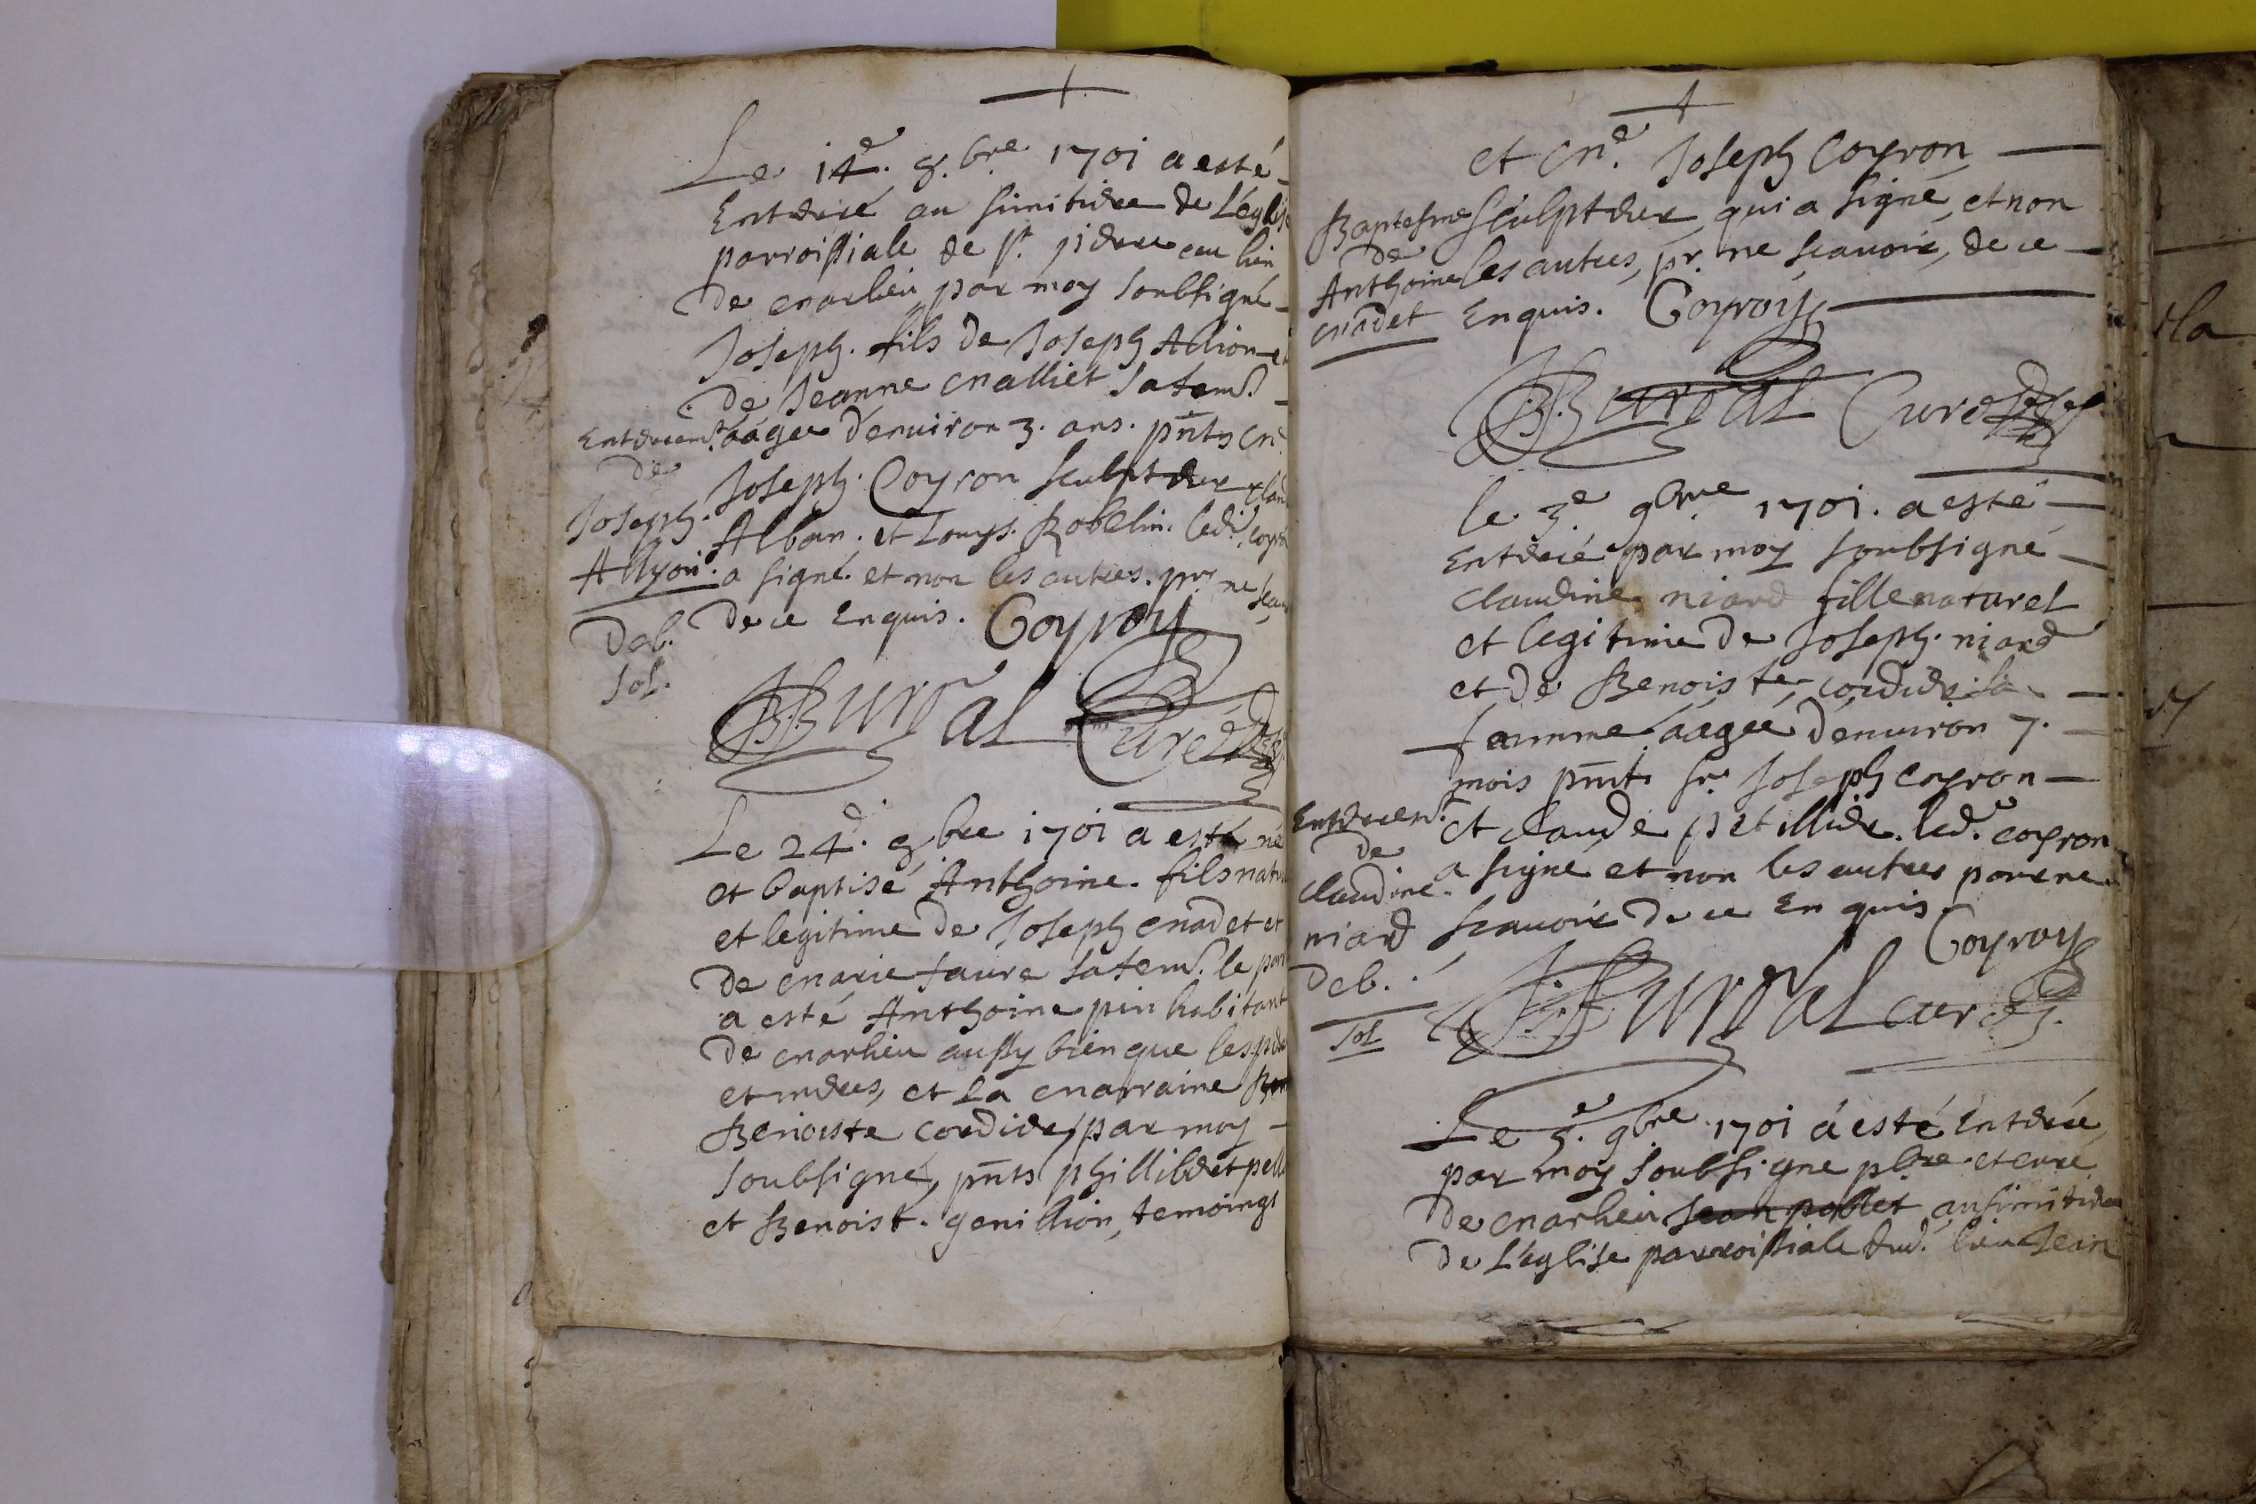 Le 14e. 8.bre 1701 a esté
Enterré au simitiere de L'eglise
parroissiale de St. pierre au lieu
de marlieu par moy soubsigné
Joseph. fils de Joseph Allion et
de Jeanne malliet sa fem.
Enterremt. aagée d'enuiron 3. ans. pnts mr.
de
Joseph. Coyron sculpteur
Joseph. Alban. et Louys. Robelin. led. coyron
Allyon. a signé. et non les autres. pr. ne
Deb. de ce Enquis. Coyron
sol.
BBurdal Curé
Le 24e. 8bre 1701 a esté né
et baptisé Anthoine. fils
et legitime de Joseph madet et
de marie faure sa fem. le
a esté Anthoine pin habitant
de marlieu aussy bien que les
et meres, et La marraine
Benoiste cordier, par moy
soubsigné, pnts phillibert
et Benoist. genillion, temoings
et mre. Joseph Coyron
Baptesme sculpteur qui a signé, et non
de les autres, pr. ne scauoir, de ce
Anthoine
madet Enquis. Coyron
BBurdal Curé
le 3e 9bre 1701. a esté
Enterré par moy soubsigné
Claudine niard fille naturel
et legitime de Joseph. niard
et de Benoiste cordier sa
famme aagée d'enuiron 7.
mois pnnt. sr. Joseph coyron
Enterrem. et claude petillier. led. coyron
de
claudine. a signé et non les autres pour ne
niard scauoir de ce Enquis. Coyron
Deb.
sol
BBurdal curé
Le 5e. 9bre 1701 a esté Enterré
par moy soubsigne pbre et curé
de marlieu Jean pollet au simitiere
de L'eglise parroissiale dud. lieu Jean